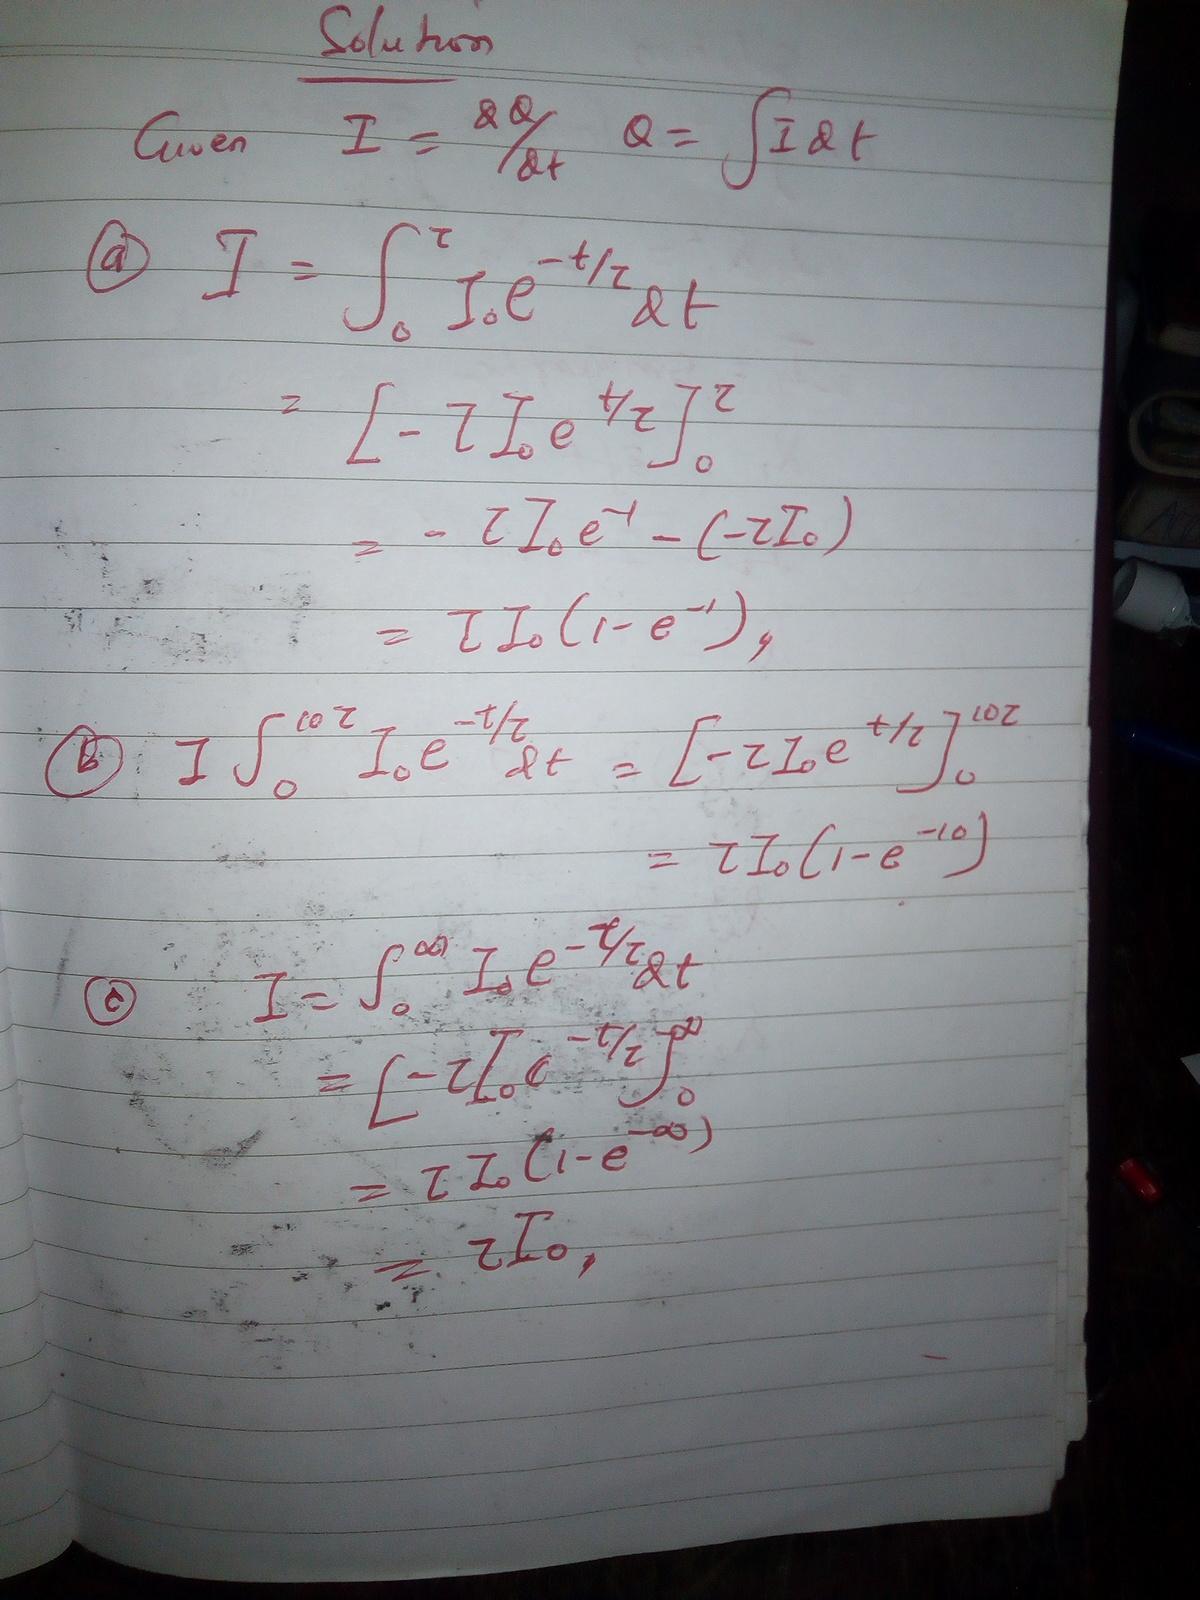 Solution
Given I = dQ/dt Q = ∫I dt
(a) I = ∫₀^τ I₀e^(-t/τ) dt
= [-τI₀e^(t/τ)]₀^τ
= -τI₀e⁻¹ - (-τI₀)
= τI₀(1-e⁻¹),
(b) I ∫₀^(10τ) I₀e^(-t/τ) dt = [-τI₀e^(t/τ)]₀^(10τ)
= τI₀(1-e⁻¹⁰)
(c) I = ∫₀^∞ I₀e^(-t/τ) dt
= [-τI₀e^(-t/τ)]₀^∞
= τI₀(1-e^(-∞))
= τI₀,